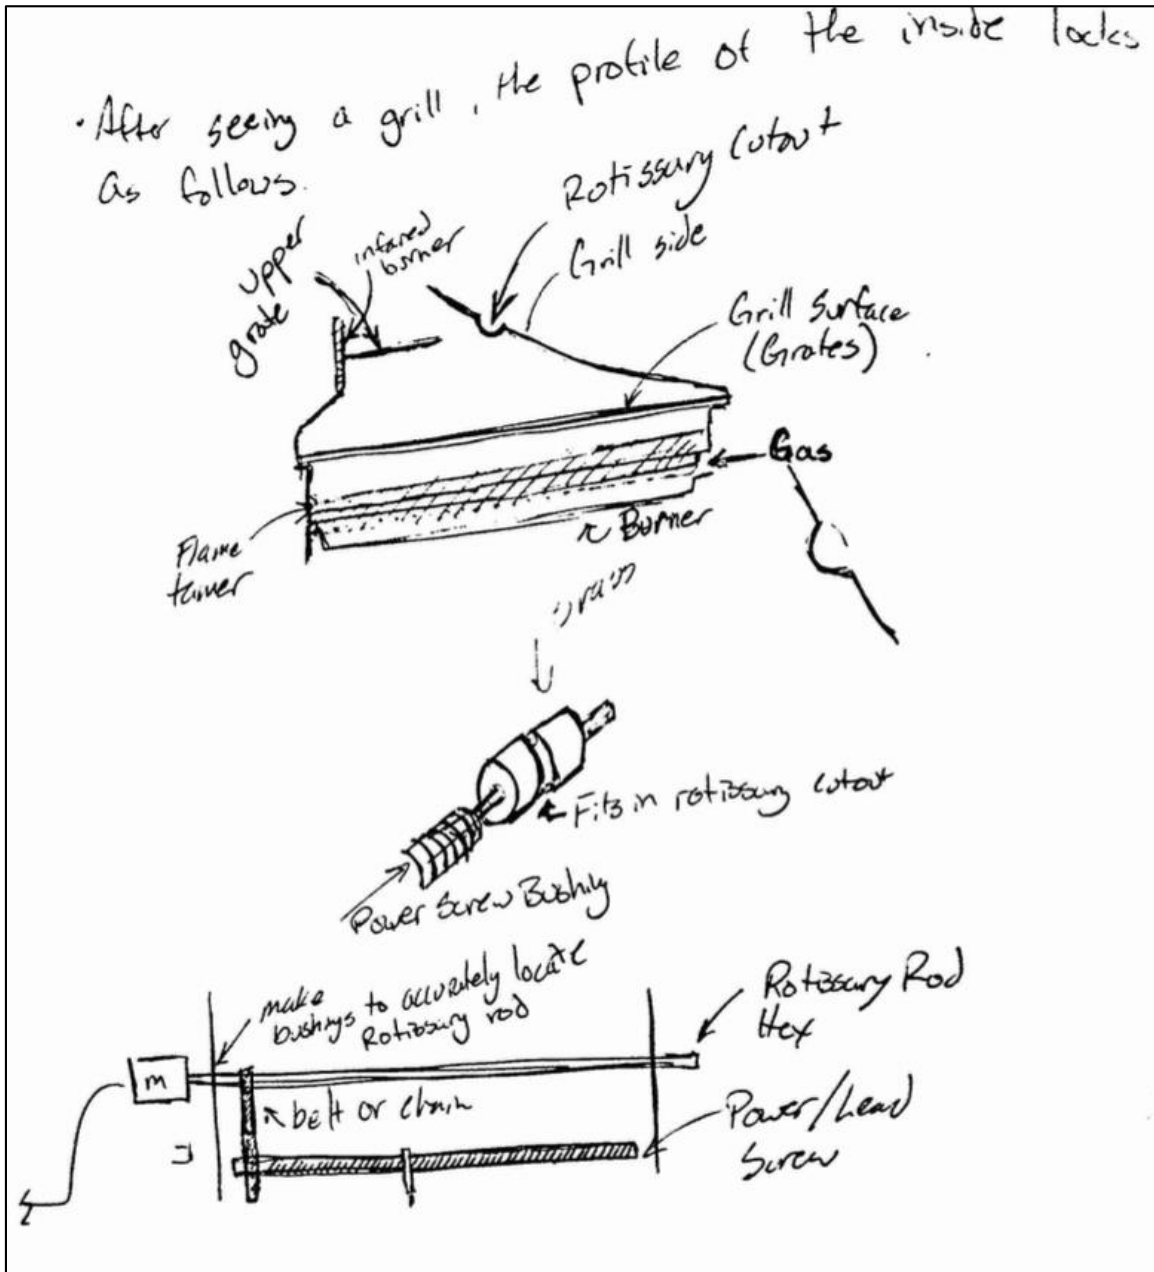 • After seeing a grill, the profile of the inside looks
as follows.
Rotissury Cutout
upper
grate
infared
burner
Grill side
Grill Surface
(Grates)
Gas
Burner
Flame
tamer
Fits in rotissury cutout
Power Screw Bushing
make
bushings to accurately locate
Rotissury rod
Rotissury Rod
Hex
M
belt or chain
Power/Lead
Screw